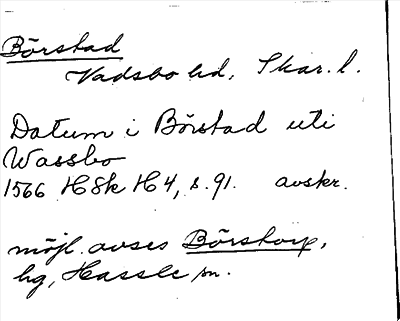 Börstad
Vadsbo hd, Skar. l.
Datum i Börstad uti
Wassbo
1566 HSk H 4, s. 91. avskr.
möjl. avses Börstorp,
hg, Hassle sn.